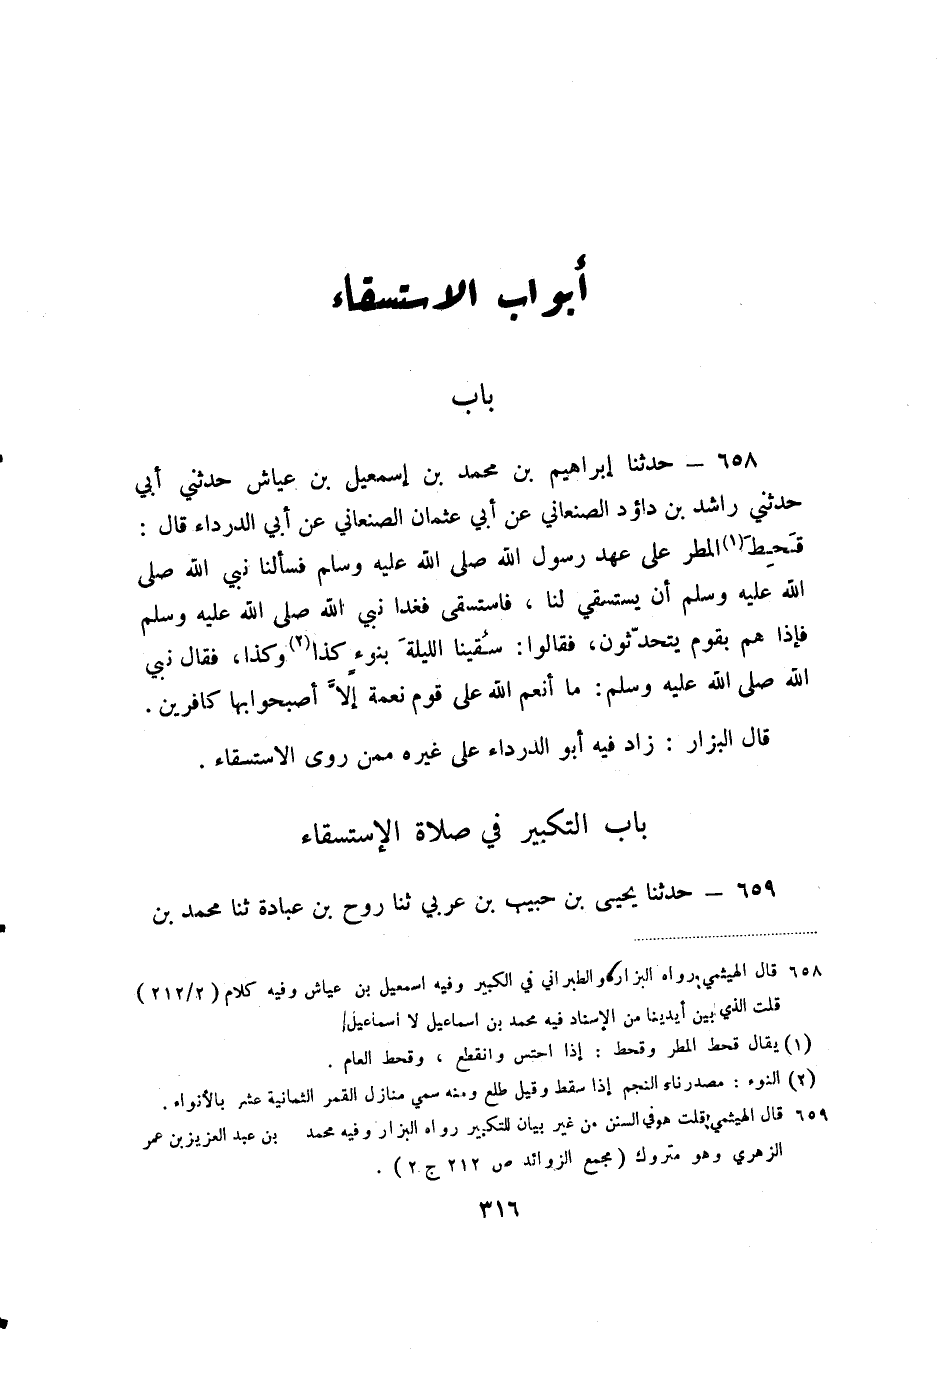 أبواب الاستسقاء
باب
٦٥٨ – حدثنا إبراهيم بن محمد بن إسمعيل بن عياش حدثني أبي
حدثني راشد بن داؤد الصنعاني عن أبي عثمان الصنعاني عن أبي الدرداء قال :
قَحِيطَ (١) المطر على عهد رسول الله صلى الله عليه وسلم فسألنا نبي الله صلى
الله عليه وسلم أن يستسقي لنا ، فاستسقى فغدا نبي الله صلى الله عليه وسلم
فإذا هم بقوم يتحدّثون، فقالوا: سُقينا الليلةَ بنوءِ كذا (٢) وكذا، فقال نبي
الله صلى الله عليه وسلم: ما أنعم الله على قوم نعمة إلاَّ أصبحوابها كافرين .
قال البزار : زاد فيه أبو الدرداء على غيره ممن روى الاستسقاء .
باب التكبير في صلاة الإستسقاء
٦٥٩ – حدثنا يحيى بن حبيب بن عربي ثنا روح بن عبادة ثنا محمد بن
٦٥٨ قال الهيثمي: رواه البزار والطبراني في الكبير وفيه اسمعيل بن عياش وفيه كلام ( ٢١٢/٢ )
قلت الذي بين أيدينا من الإسناد فيه محمد بن اسماعيل لا اسماعيل
(١) يقال قحط المطر وقحط : إذا احتبس وانقطع ، وقحط العام .
(٢) النوء : مصدرناء النجم إذا سقط وقيل طلع ومنه سمي منازل القمر الثمانية عشر بالأنواء .
٦٥٩ قال الهيثمي: قلت هوفي السنن من غير بيان للتكبير رواه البزار وفيه محمد بن عبد العزيزبن عمر
الزهري وهو متروك ( مجمع الزوائد ص ٢١٢ ج ٢ ) .
٣١٦